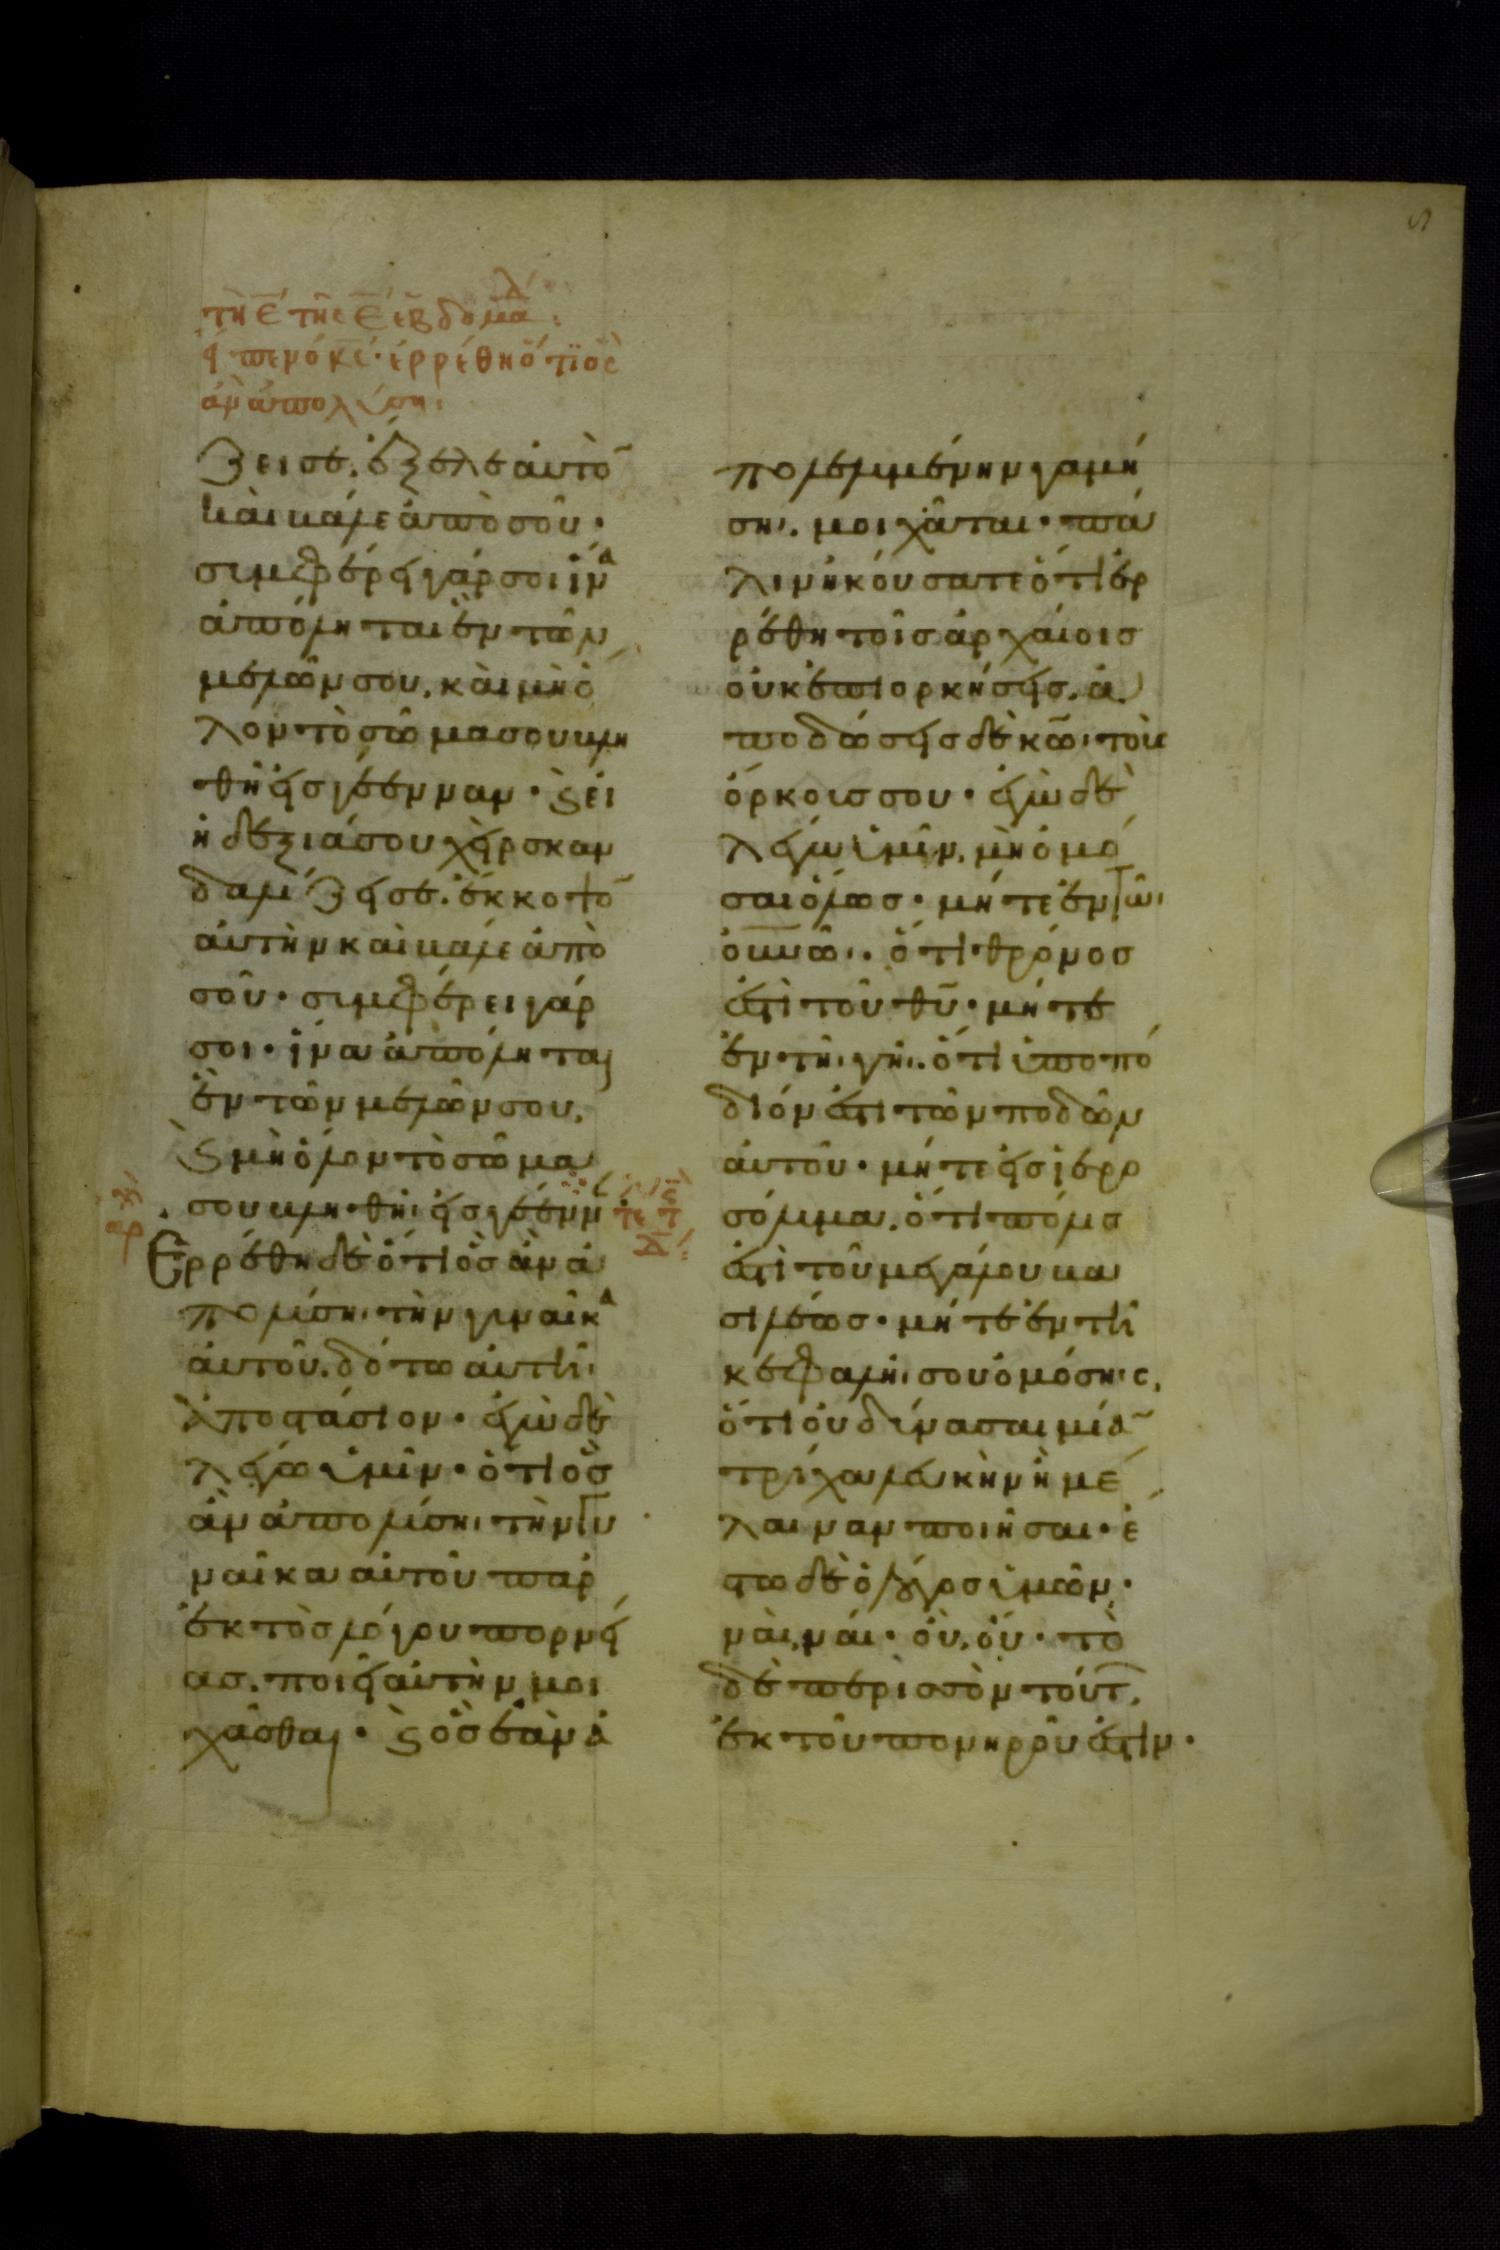 τῆ ε̅ τῆς ε̅ ἑβδομάδ:
εἶπεν ὁ κς· ἐρρέθη ὅτι ὃς
ἂν ἀπολύση:
ζει σε. ἔξελε ἀυτὸ̅
καὶ βάλε ἀπὸ σοῦ·
σιμφέρει γάρ σοι ἵνα
ἀπόληται ἓν τῶν
μελῶν σου, καὶ μὴ ὅ
λον τὸ σῶμα σου βλη
θῆ εἰς γέενναν· ϗ ἐι
η δεξιά σου χεὶρ σκαν
δαλίζει σε. ἔκκοψο̅
ἀυτὴν καὶ βάλε ἀπὸ
σοῦ· σιμφέρει γάρ
σοι· ἵνα ἀπόληται
ἓν τῶν μελῶν σου,
ϗ μὴ ὅλον τὸ σῶμα
σου βληθῆι εἰς γέενν̅
Ερρέθη δὲ ὅτι ὃς ἂν ἀ
πολύση· τὴν γυναῖκα
ἀυτοῦ. δότω ἀυτῆι·
ἀποστάσιον· ἐγὼ δὲ
λέγω ὑμῖν· ὅτι ὃς
ἂν ἀπολύσηι τὴν γυ
ναῖκα αὐτοῦ παρ
ἐκτὸς λόγου πορνεί
ας. ποιεῖ ἀυτὴν μοι
χᾶσθαι· ϗ ὃς ἐὰν ἀ
πολελυμένην γαμή
σηι. μοιχᾶται· πά
λιν ἠκούσατε ὅτι ἐρ
ρέθη τοῖς ἀρχαίοις
ὀυκ ἐπιορκήσεις. ἀ
ποδώσεις δὲ κ̅ω̅ι τοὺς
ὅρκοις σου· ἐγὼ δὲ
λέγω ὑμῖν, μὴ ὀμό
σαι ὅλως· μήτε ἐν τῶι
ὀυ̅νῶι. ὅτι θρόνος
ἐστὶ τοῦ θ̅υ̅· μήτε
ἐν τῆι γῆι. ὅτι ὑποπό
διόν ἐστι τῶν ποδῶν
ἀυτοῦ· μήτε εἰς ἱερο
σόλυμα. ὅτι πόλις
ἐστὶ τοῦ μεγάλου βα
σιλέως· μήτε ἐν τῆι
κεφαλῆι σου ὀμόσηις,
ὅτι ὀυ δύνασαι μία̅
τρίχα λευκὴν ἢ μέ
λαιναν ποιῆσαι· ἔ
στω δὲ ὁ λόγος ὑμῶν·
ναὶ, ναί· ὀὺ, ὀύ· τὸ
δὲ περισσὸν τούτ,
ἐκ τοῦ πονηροῦ ἐστὶν·